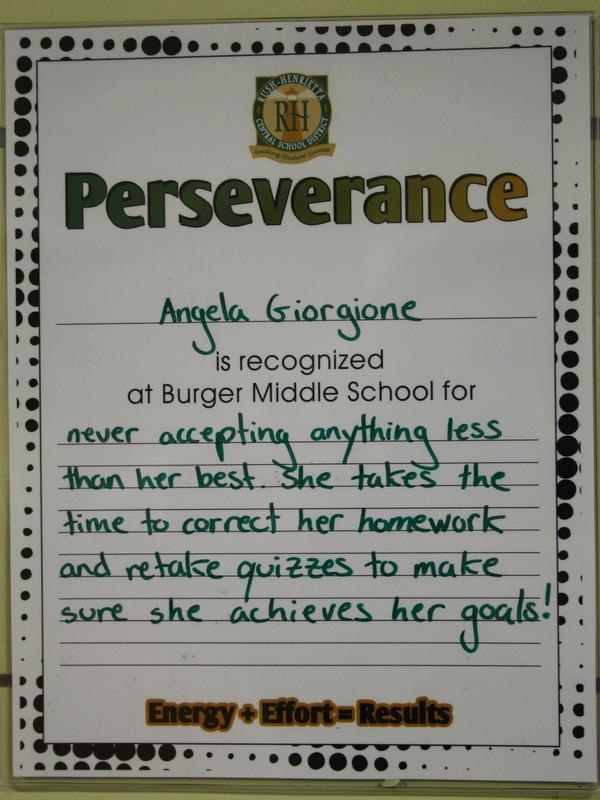 RUSH-HENRIETTA
RH
CENTRAL SCHOOL DISTRICT
Guiding Student Success
Perseverance
Angela Giorgione
is recognized
at Burger Middle School for
never accepting anything less
than her best. She takes the
time to correct her homework
and retake quizzes to make
sure she achieves her goals!
Energy + Effort = Results